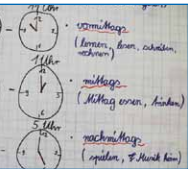 12 Uhr
12
9 3
6
- vormittags
(lernen, lesen, schreiben,
rechnen)
1 Uhr
12
9 3
6
mittags
(Mittag essen, trinken)
5 Uhr
12
9
nachmittags
(spielen, Musik hören)